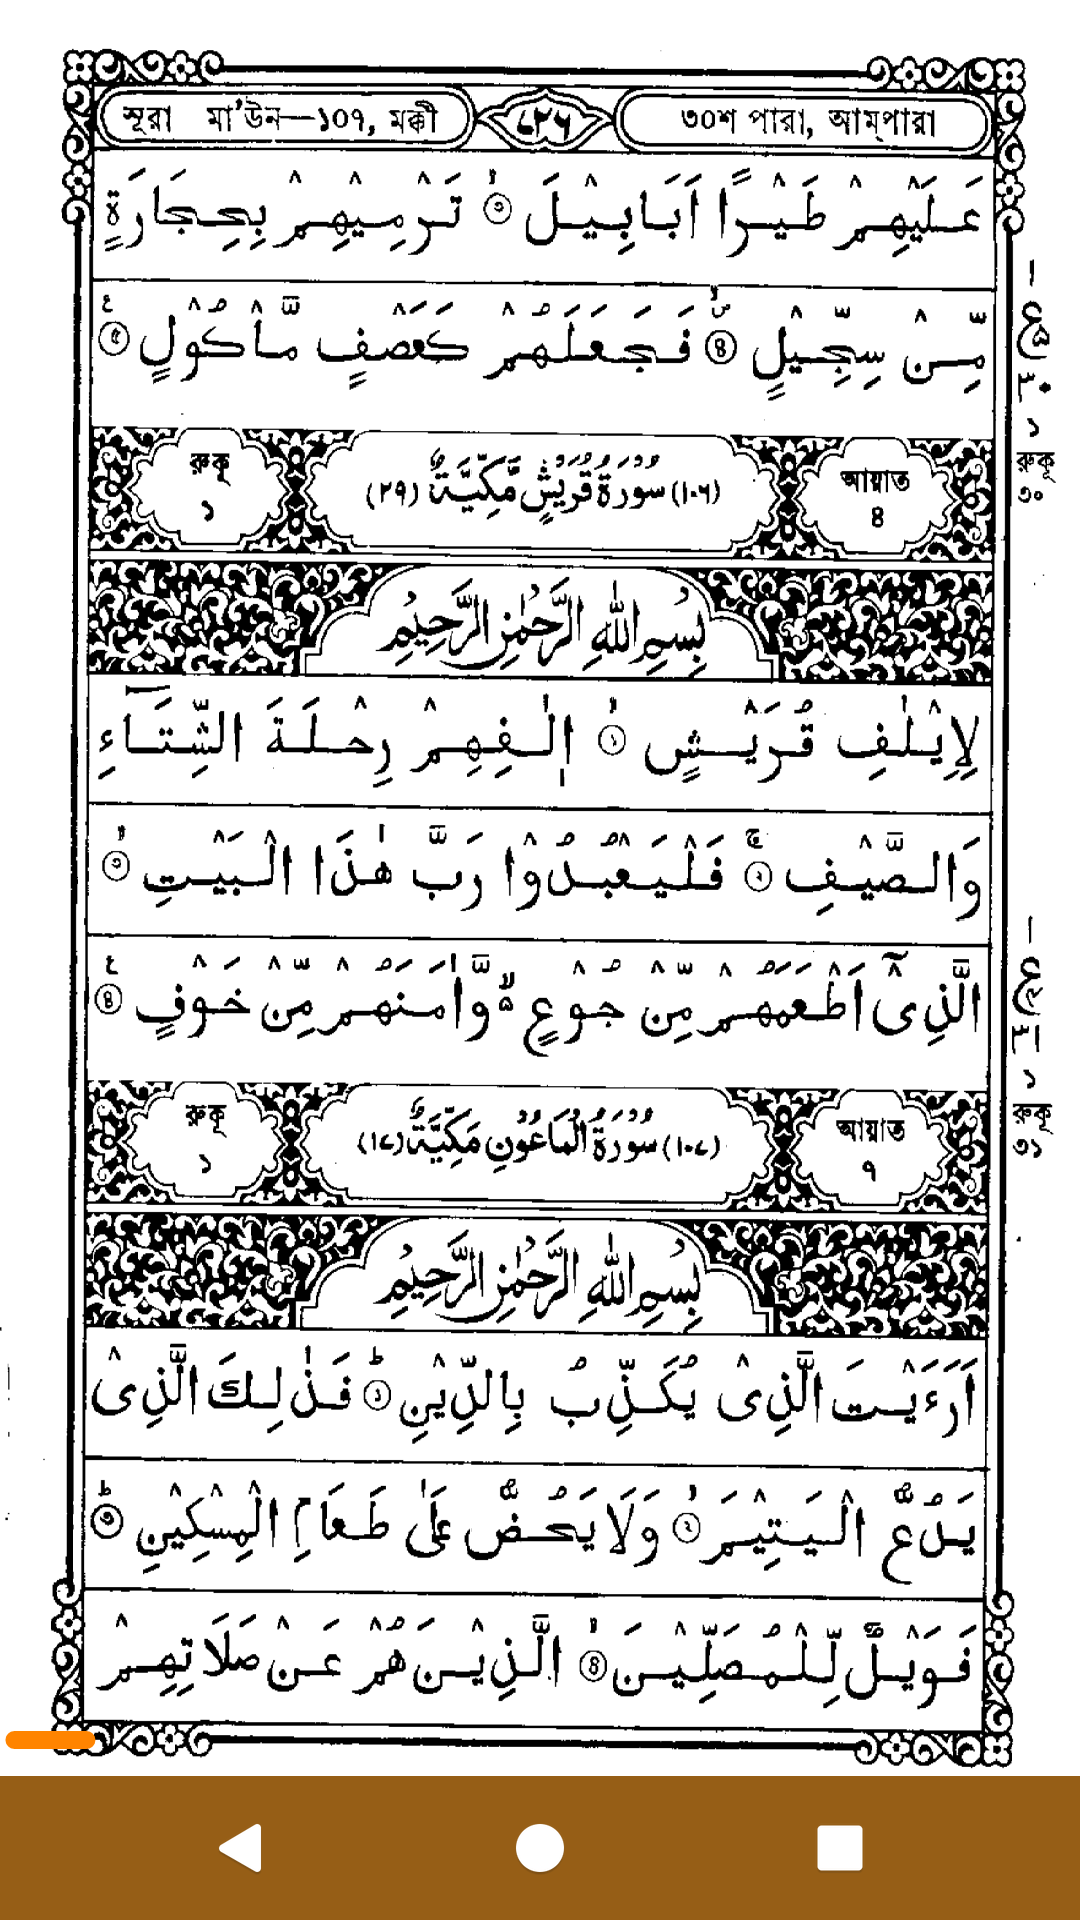 সূরা মা'উন—১০৭, মক্কী ৮২৬ ৩০শ পারা, আম্‌পারা
عَلَيْهِمْ طَيْرًا اَبَابِيْلَ ۙ﴿৩﴾ تَرْمِيْهِمْ بِحِجَارَةٍ
مِّنْ سِجِّيْلٍ ۪ۙ﴿৪﴾ فَجَعَلَهُمْ كَعَصْفٍ مَّاْكُوْلٍ ﴿৫﴾ ع
রুকূ ১ (١٠٦) سُوْرَةُ قُرَيْشٍ مَّكِّيَّةٌ (٢٩) আয়াত ৪
রুকূ ৩০
بِسْمِ اللّٰهِ الرَّحْمٰنِ الرَّحِيْمِ
لِاِيْلٰفِ قُرَيْشٍ ۙ﴿১﴾ اٖلٰفِهِمْ رِحْلَةَ الشِّتَآءِ
وَالصَّيْفِ ۚ﴿২﴾ فَلْيَعْبُدُوْا رَبَّ هٰذَا الْبَيْتِ ۙ﴿৩﴾
الَّذِىْٓ اَطْعَمَهُمْ مِّنْ جُوْعٍ ۙ৫ وَّاٰمَنَهُمْ مِّنْ خَوْفٍ ﴿৪﴾ ع
রুকূ ১ (١٠٧) سُوْرَةُ الْمَاعُوْنِ مَكِّيَّةٌ (١٧) আয়াত ৭
রুকূ ৩১
بِسْمِ اللّٰهِ الرَّحْمٰنِ الرَّحِيْمِ
اَرَءَيْتَ الَّذِىْ يُكَذِّبُ بِالدِّيْنِ ؕ﴿১﴾ فَذٰلِكَ الَّذِىْ
يَدُعُّ الْيَتِيْمَ ۙ﴿২﴾ وَلَا يَحُضُّ عَلٰى طَعَامِ الْمِسْكِيْنِ ؕ﴿৩﴾
فَوَيْلٌ لِّلْمُصَلِّيْنَ ۙ﴿৪﴾ الَّذِيْنَ هُمْ عَنْ صَلَاتِهِمْ